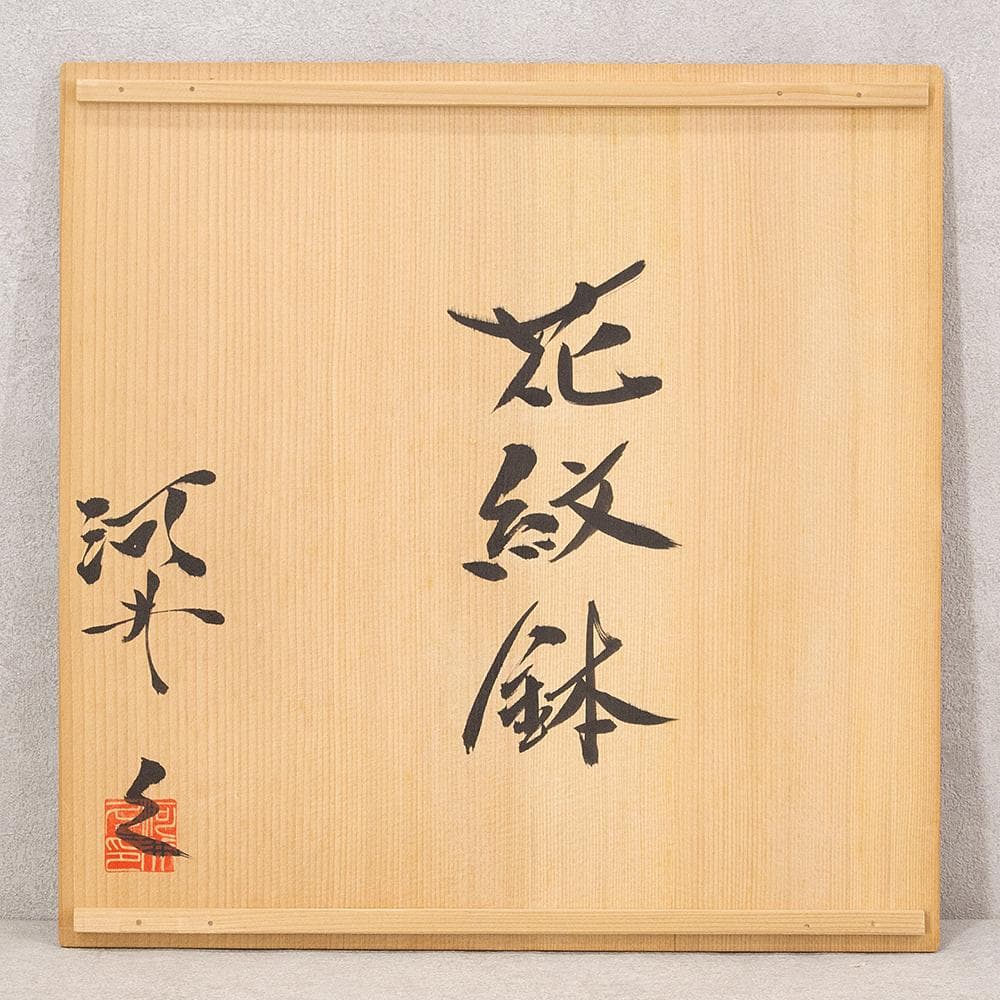 花紋鉢
河井
久